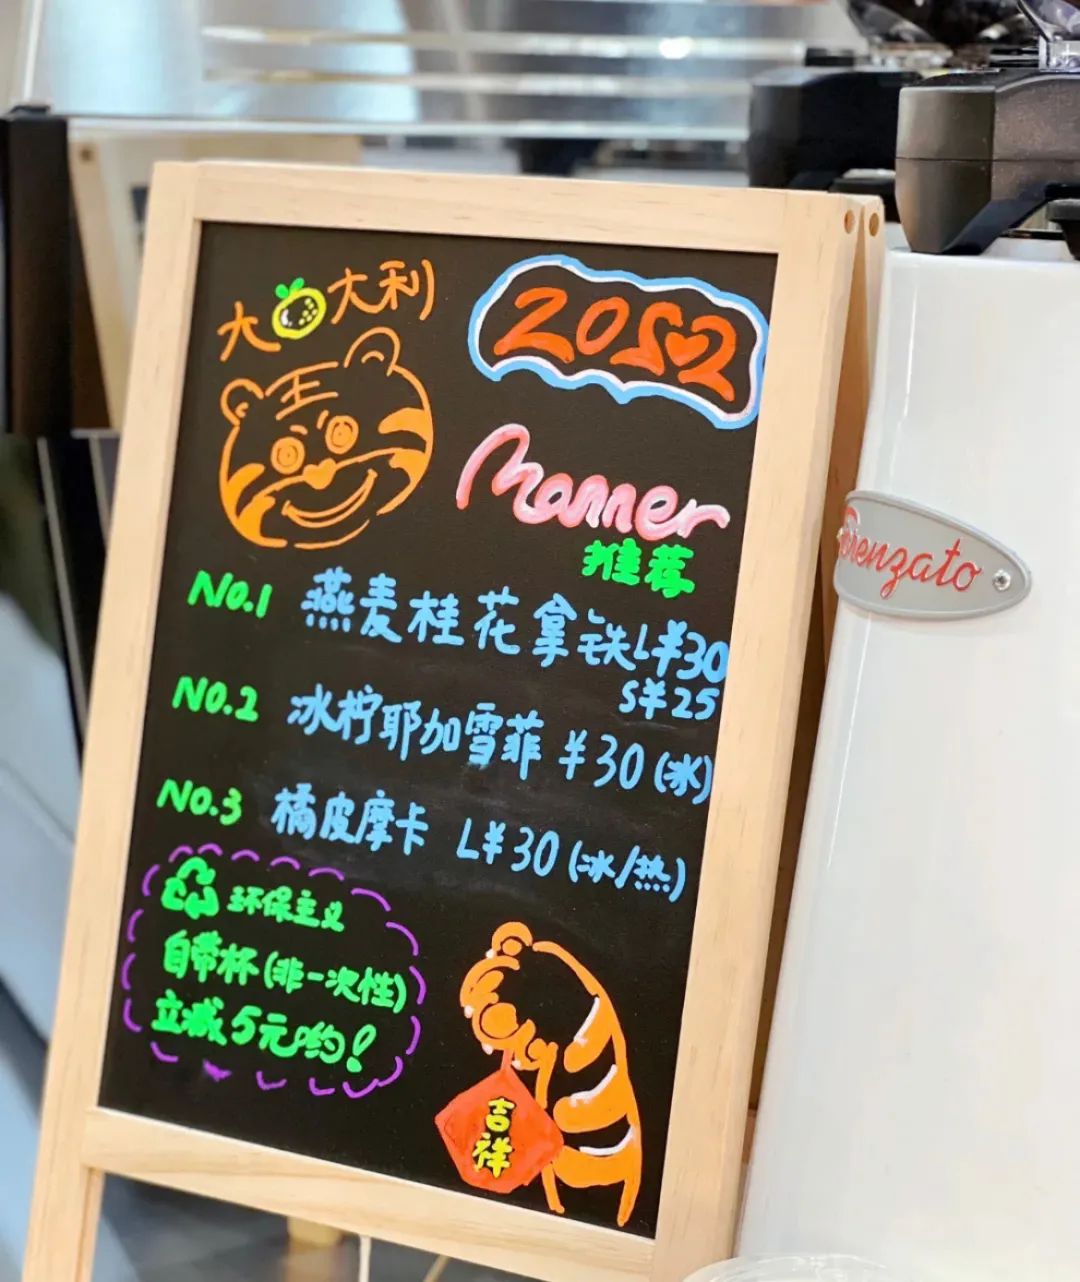 大 大利
王
2022
Manner
推荐
No.1 燕麦桂花拿铁 L¥30
S¥25
No.2 冰柠耶加雪菲 ¥30 (冰)
No.3 橘皮摩卡 L¥30 (冰/热)
环保主义
自带杯(非一次性)
立减5元哟!
吉祥
renzato